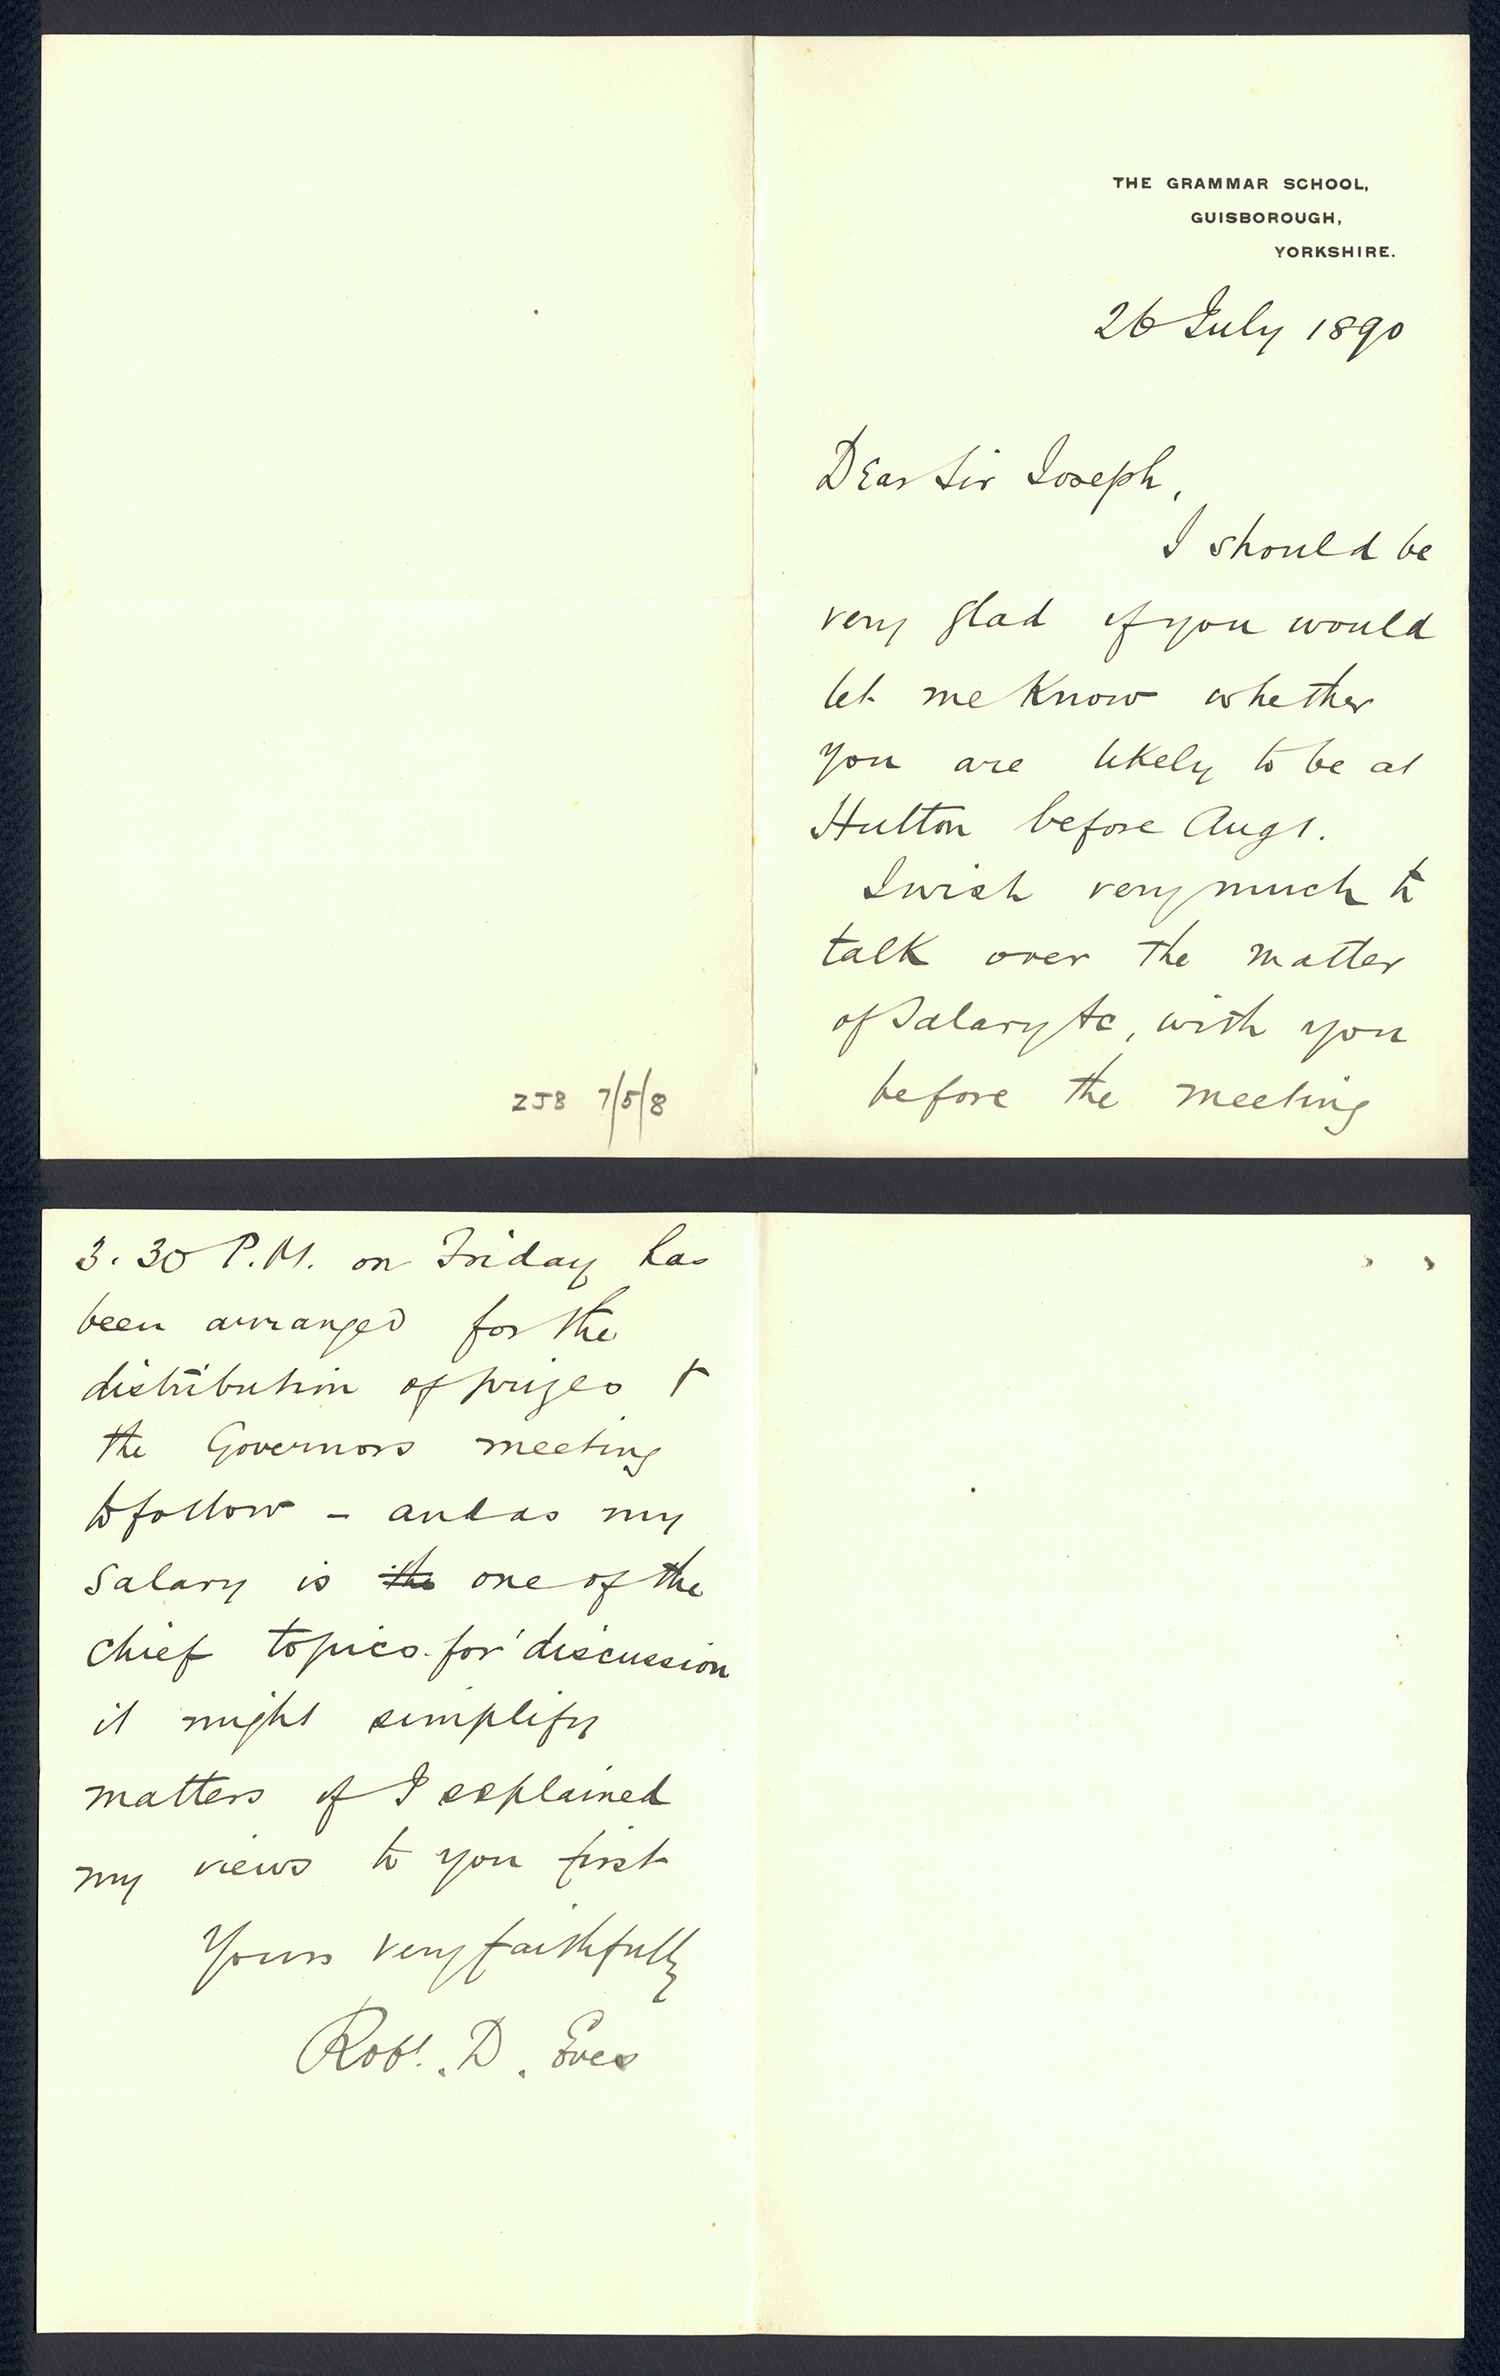 THE GRAMMAR SCHOOL,
GUISBOROUGH,
YORKSHIRE.
26 July 1890
Dear Sir Joseph,
I should be
very glad if you would
let me know whether
you are likely to be at
Hutton before Aug 1.
I wish very much to
talk over the matter
of Salary &c, with you
before the meeting
ZJB 7/5/8
3.30 P.M. on Friday has
been arranged for the
distribution of prizes &
the Governors meeting
to follow - and as my
salary is the one of the
chief topics for discussion
it might simplify
matters if I explained
my views to you first
Yours very faithfully
Robt. D. Eves